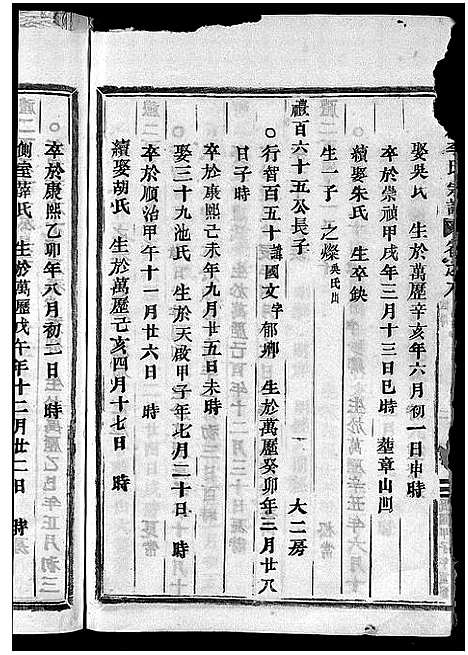 李氏宗譜 卷之八
娶吳氏 生於萬歷辛亥年六月初一日申時
卒於崇禎甲戌年三月十三日巳時 塟章山凹
續娶朱氏 生卒缺
生一子 之燦 吳氏出
禮百六十五公長子 大二房
行智百五十 諱國文 字郁卿 生於萬歷癸卯年三月廿八
日子時
卒於康熙己未年九月廿五日未時
娶三十九池氏 生於天啟甲子年七月二十日 時
卒於順治甲午十一月廿六日 時
續娶胡氏 生於萬歷己亥四月十七日 時
卒於康熙乙卯年八月初三日 時
側室蔣氏 生於萬歷戊午年十二月廿二日 時